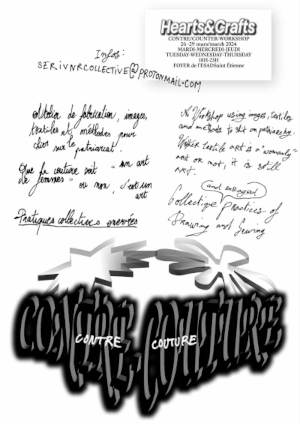 Hearts&Crafts
CONTRE/COUNTER WORKSHOP
26-29 mars/march 2024
MARDI-MERCREDI-JEUDI
TUESDAY-WEDNESDAY-THURSDAY
18H-23H
FOYER de l'ESAD Saint Étienne
Infos:
SERIVNRCOLLECTIVE@PROTONMAIL.COM
Atelier de fabrication, images,
textiles et méthodes pour
chier sur le patriarcat.
Que la couture soit "un art
de femmes" ou non, c'est un
art
Pratiques collectives
A Workshop using images, textiles
and methods to shit on patriarchy
textile art is a "womanly"
art or not, it is still
art.
Collective (and) practices of
Drawing and Sewing
CONTRE-COUTURE
CONTRE COUTURE